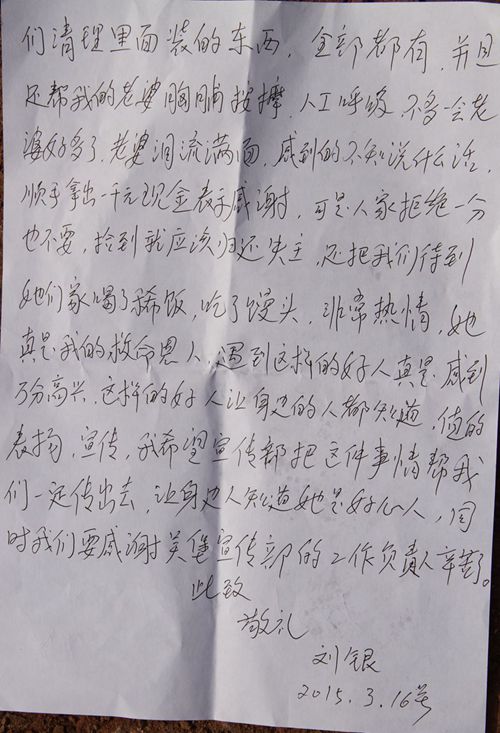 们清理里面装的东西，全部都有，并且
还帮我的老婆胸脯按摩，人工呼吸，不多一会老
婆好多了，老婆泪流满面，感到的不知说什么话，
顺手拿出一千元现金表示感谢，可是人家拒绝一分
也不要，捡到就应该归还失主，还把我们待到
她们家喝了稀饭，吃了馒头，非常热情，她
真是我的救命恩人，遇到这样的好人真是感到
万分高兴，这样的好人让身边的人都知道，值的
表扬，宣传，我希望宣传部把这件事情帮我
们一定传出去，让身边人知道她是好心人，同
时我们要感谢吴堡宣传部的工作负责人辛勤。
此致
敬礼
刘银
2015.3.16号